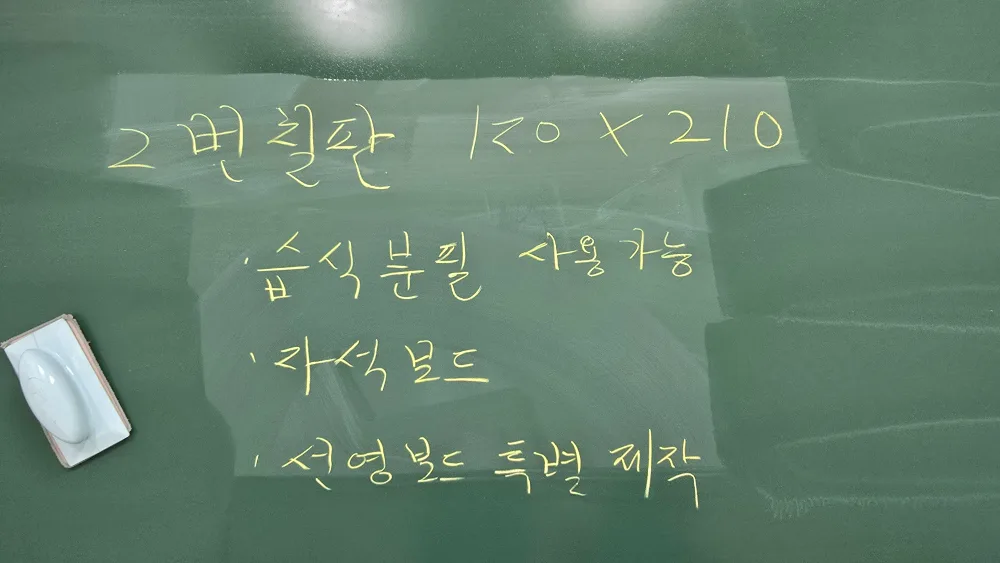 2번칠판 120 X 210
· 습식분필 사용가능
· 자석보드
· 선영보드 특별제작